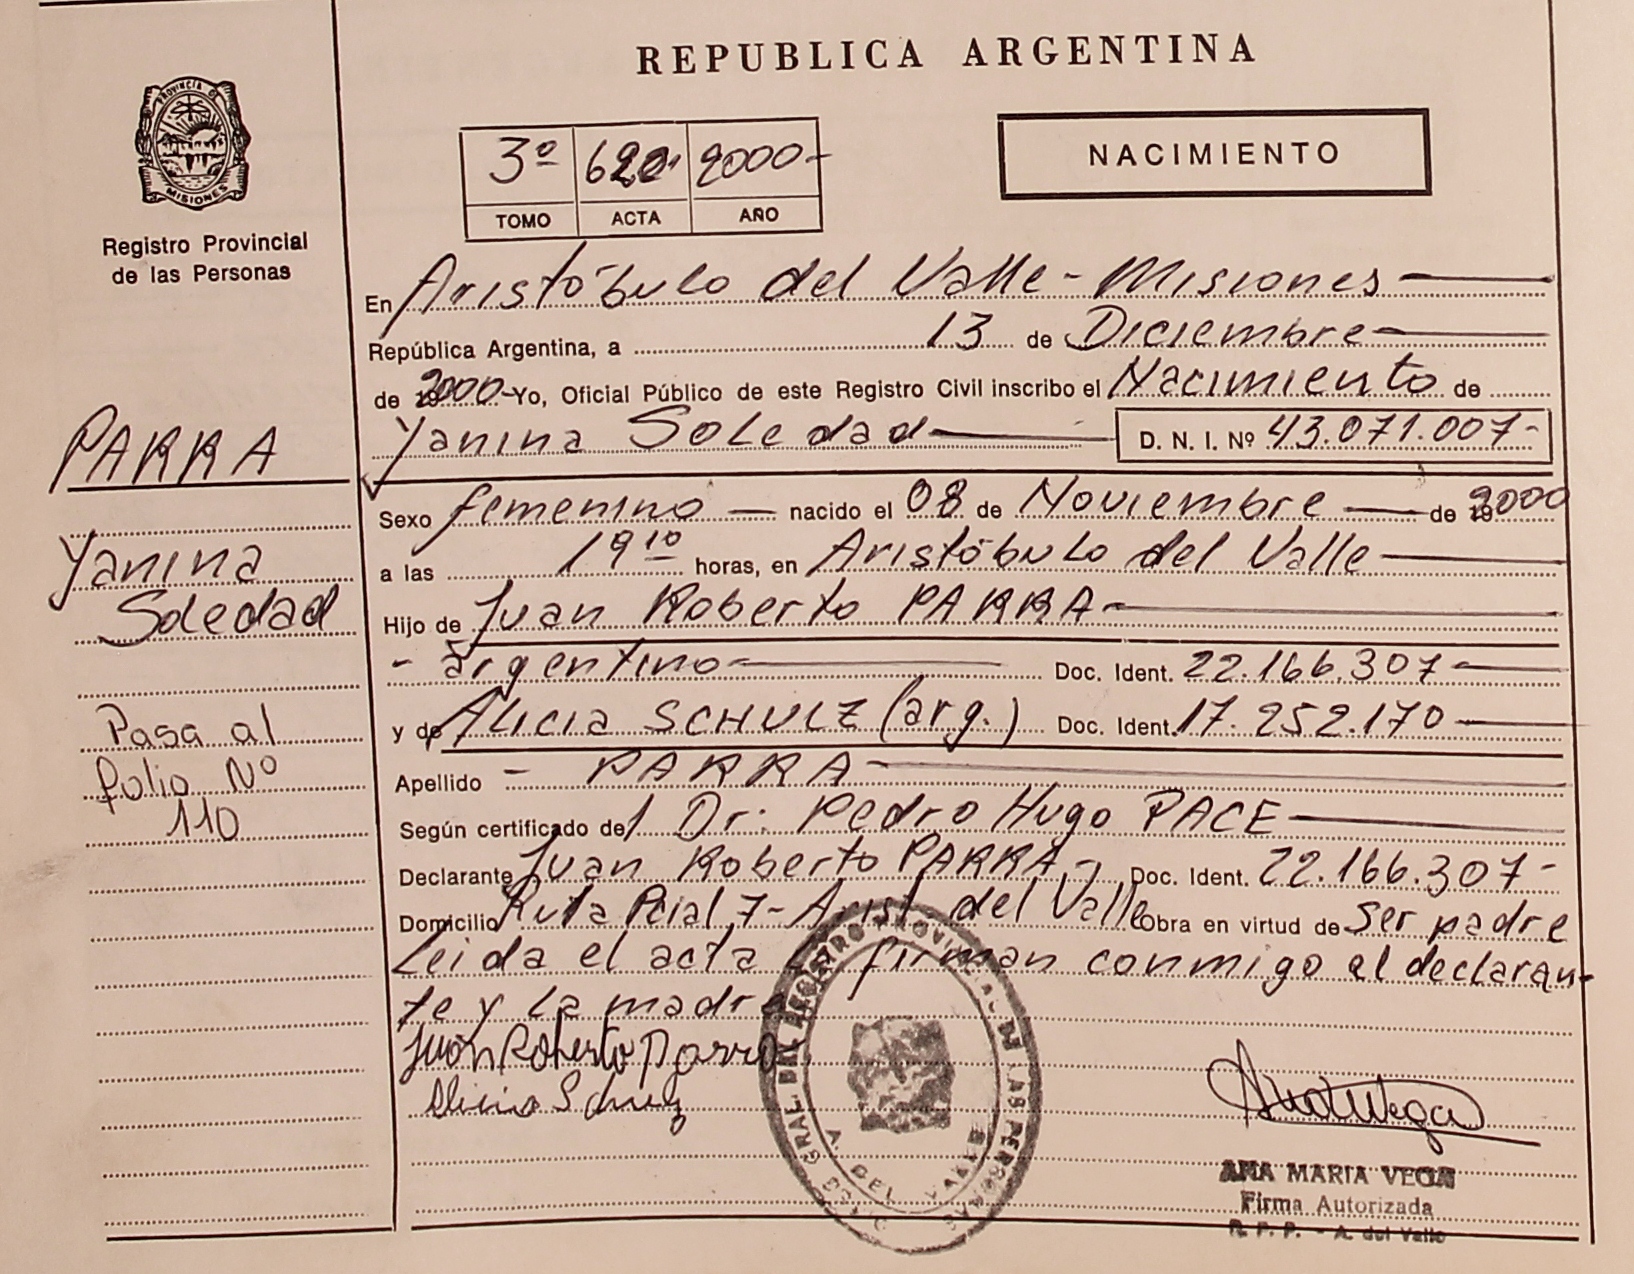 REPUBLICA ARGENTINA
PROVINCIA D
MISIONES
Registro Provincial
de las Personas
3º 2000-
TOMO ACTA AÑO
NACIMIENTO
En Aristóbulo del Valle - Misiones
República Argentina, a 13 de Diciembre
de 2000- Yo, Oficial Público de este Registro Civil inscribo el Nacimiento de
Yanina Soledad D. N. I. Nº 43.071.007-
PARRA
Sexo femenino nacido el 08 de Noviembre de 2000
Yanina
a las 19 10 horas, en Aristóbulo del Valle
Soledad
Hijo de Juan Roberto PARRA-
- argentino- Doc. Ident. 22.166.307-
Pasa al
y de ALICIA SCHULZ (arg.) Doc. Ident. 17.252.170
folio Nº
Apellido - PARRA-
110
Según certificado del Dr. Pedro Hugo PACE
Declarante Juan Roberto PARRA-, Doc. Ident. 22.166.307-
Domicilio Ruta Pcial 7- Arist. del Valle Obra en virtud de ser padre
Leida el acta firman conmigo el declaran-
te y La madre
Juan Roberto Parra
GRAL. DEL REGISTRO PROVINCIAL DE LAS PERSONAS
A. DEL VALLE
ANA MARIA VEGA
Firma Autorizada
R. P. P. - A. del Valle